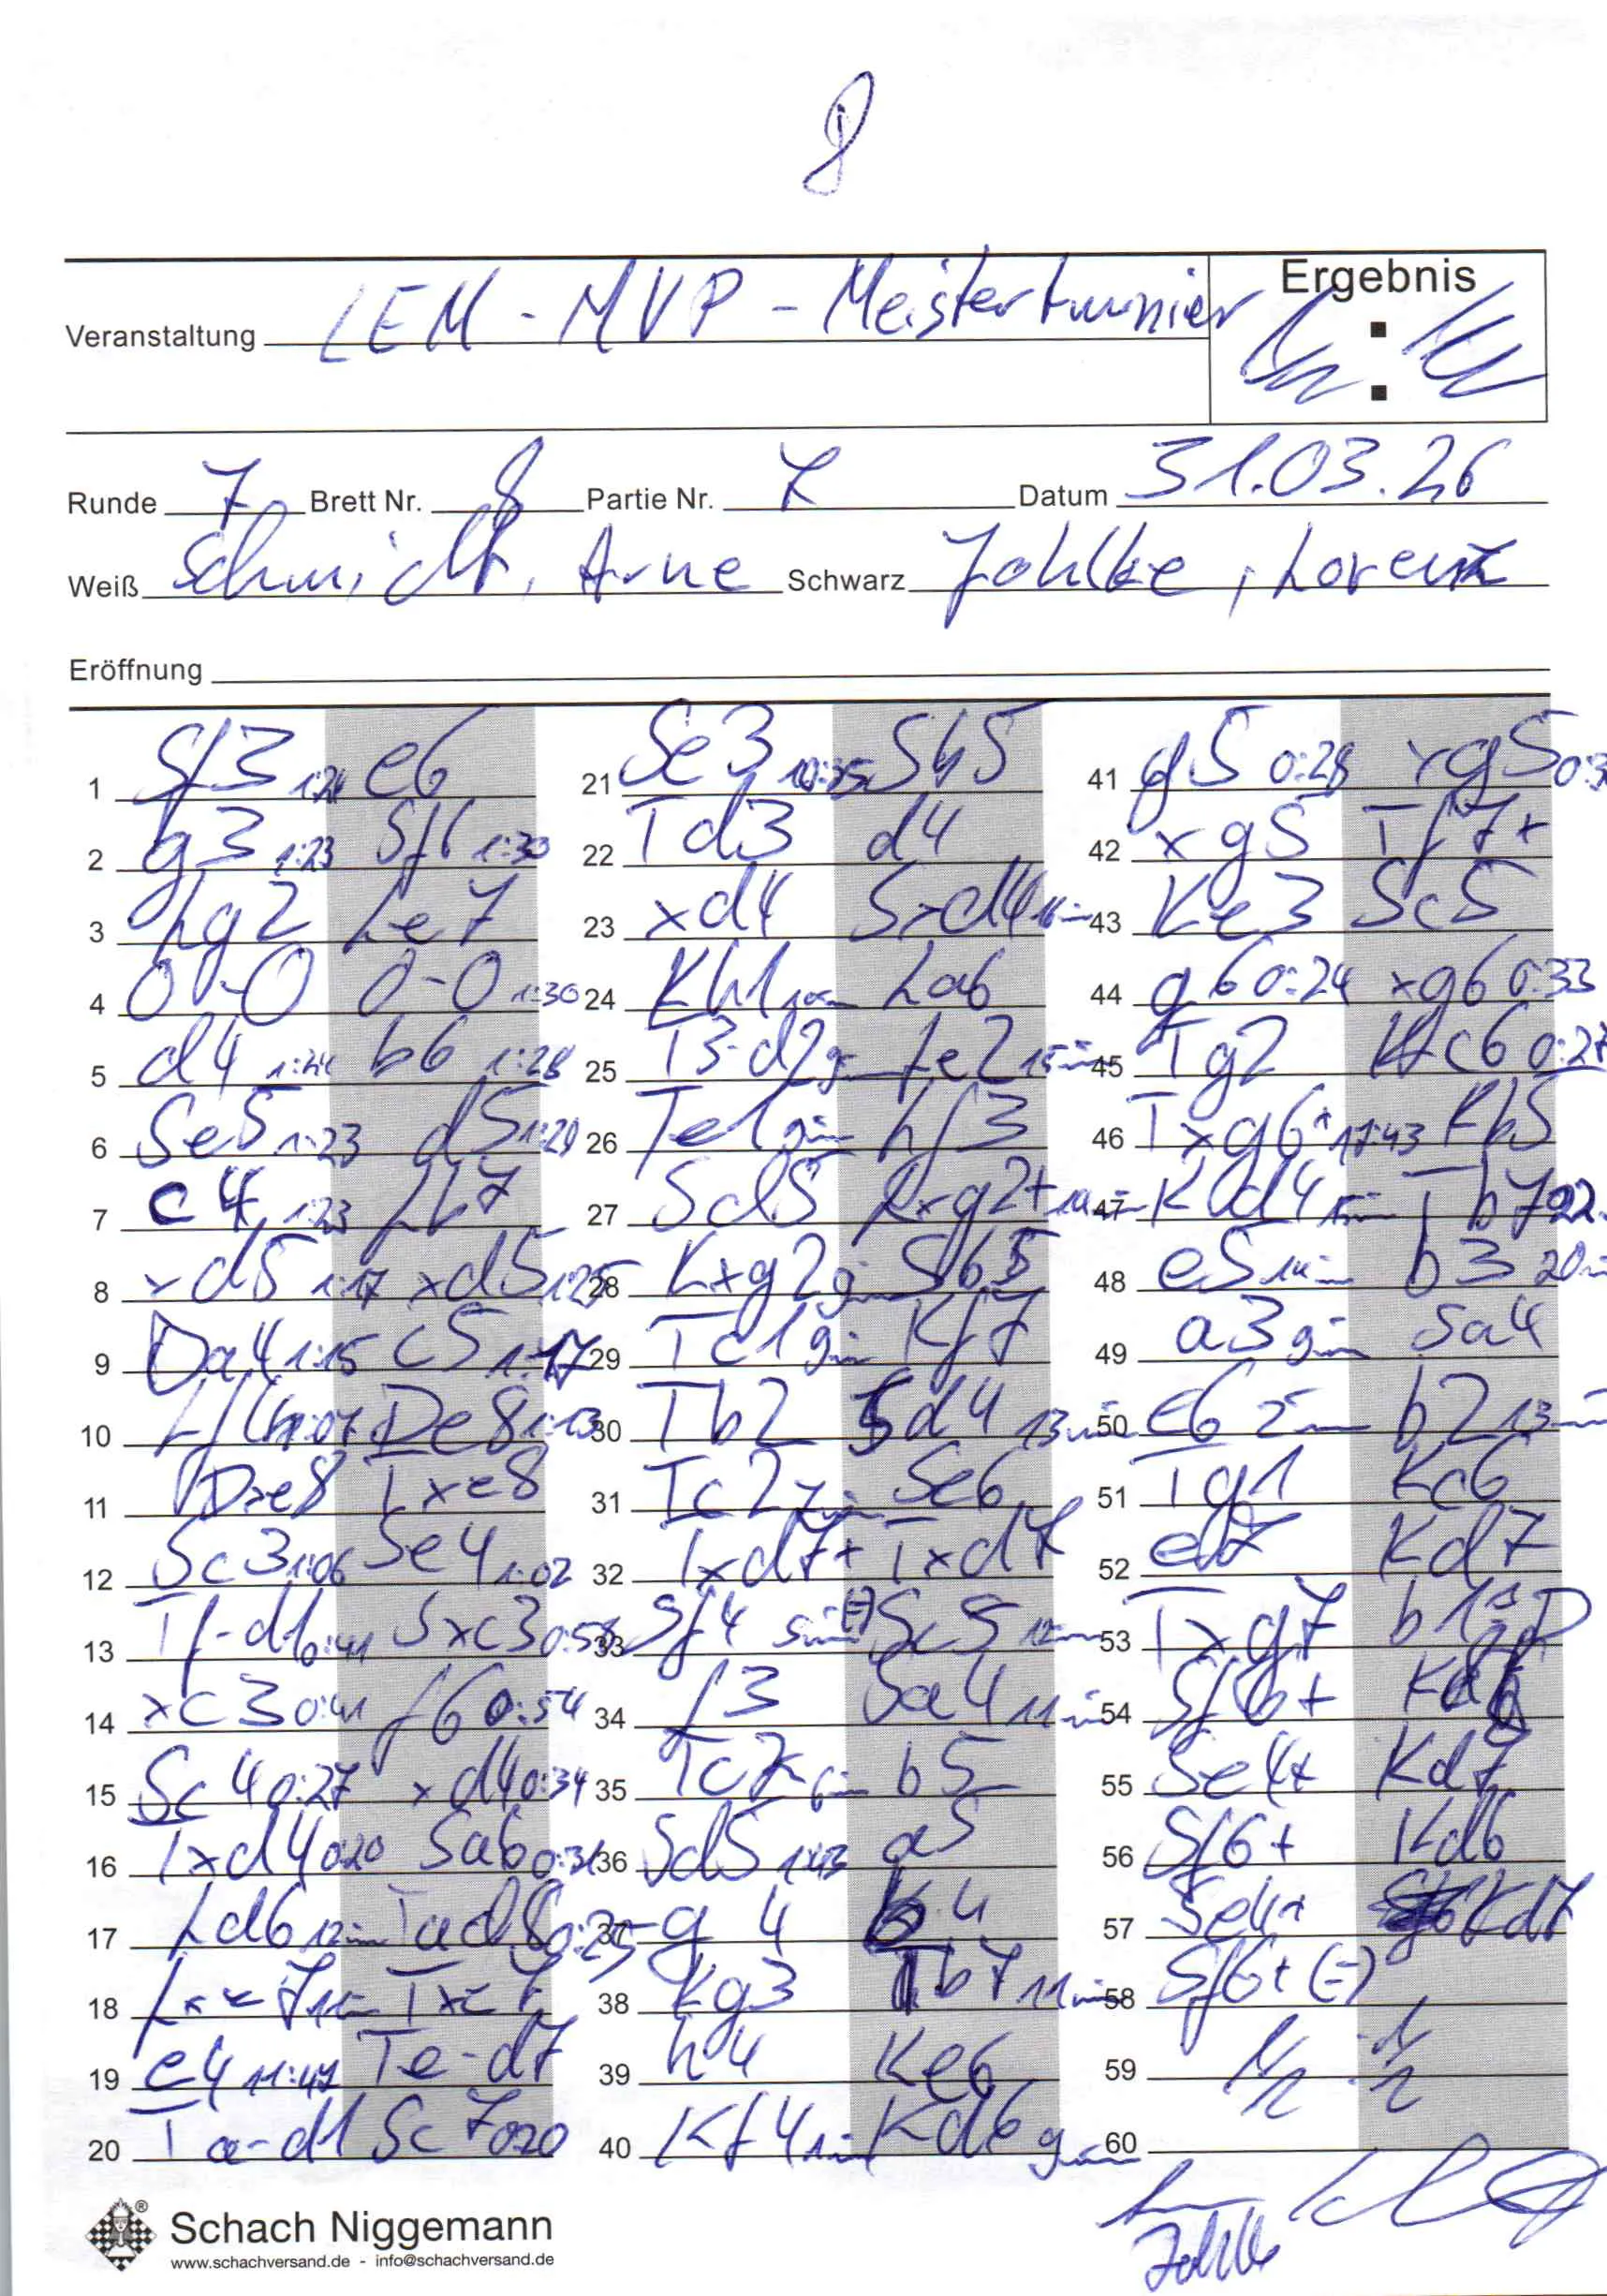 8
Ergebnis
Veranstaltung LEM - MVP - Meisterturnier
½ : ½
Runde 7 Brett Nr. 8 Partie Nr. 7 Datum 31.03.26
Weiß Schmidt, Arne Schwarz Jahlke, Lorenz
Eröffnung
1 Sf3 1:24 e6
2 g3 1:23 Sf6 1:30
3 Lg2 Le7
4 0-0 0-0 1:30
5 d4 1:24 b6 1:28
6 Se5 1:23 d5 1:29
7 c4 1:23 Lb7
8 xd5 1:17 xd5 1:25
9 Da4 1:15 c5 1:17
10 Lf4 1:07 De8 1:13
11 Dxe8 Txe8
12 Sc3 1:06 Se4 1:02
13 Tf-d1 0:41 Sxc3 0:58
14 xc3 0:41 f6 0:54
15 Sc4 0:27 xd4 0:34
16 Txd4 0:20 Sa6 0:31
17 Ld6 12min Tad8 0:25
18 Lxe7 11min Txe7
19 e4 11:47 Te-d7
20 Ta-d1 Sc7 0:20
21 Se3 10:35 Sb5
22 Td3 d4
23 xd4 Sxd4 16min
24 Kh1 10min La6
25 T3-d2 9min Le2 15min
26 Te1 9min Lf3
27 Sd5 Lxg2+ 14min
28 Kxg2 9min Sb5
29 Tc1 9min Kf7
30 Tb2 Sd4 13min
31 Tc2 7min Se6
32 Txd7+ Txd7
33 Sf4 5min (=) Sc5 12min
34 f3 Sa4 11min
35 Tc7 6min b5
36 Sd5 1:43 a5
37 g4 b4
38 Kg3 Tb7 11min
39 h4 Ke6
40 Kf4 1min Kd6 9min
41 g5 0:28 xg5
42 xg5 Tf7+
43 Ke3 Sc5
44 g6 0:24 xg6 0:33
45 Tg2 Kc6 0:27
46 Txg6+ 17:43 Kb5
47 Kd4 15min Tb7 022
48 e5 14min b3 20
49 a3 9min Sa4
50 e6 2min b2 13min
51 Tg1 Kc6
52 e7 Kd7
53 Txg7 b1=D
54 Sf6+ Kd6
55 Se4+ Kd7
56 Sf6+ Kd6
57 Se4+ Kd7
58 Sf6+ (=)
59 ½ : ½
60
Jahlke
Schach Niggemann
®
www.schachversand.de - info@schachversand.de